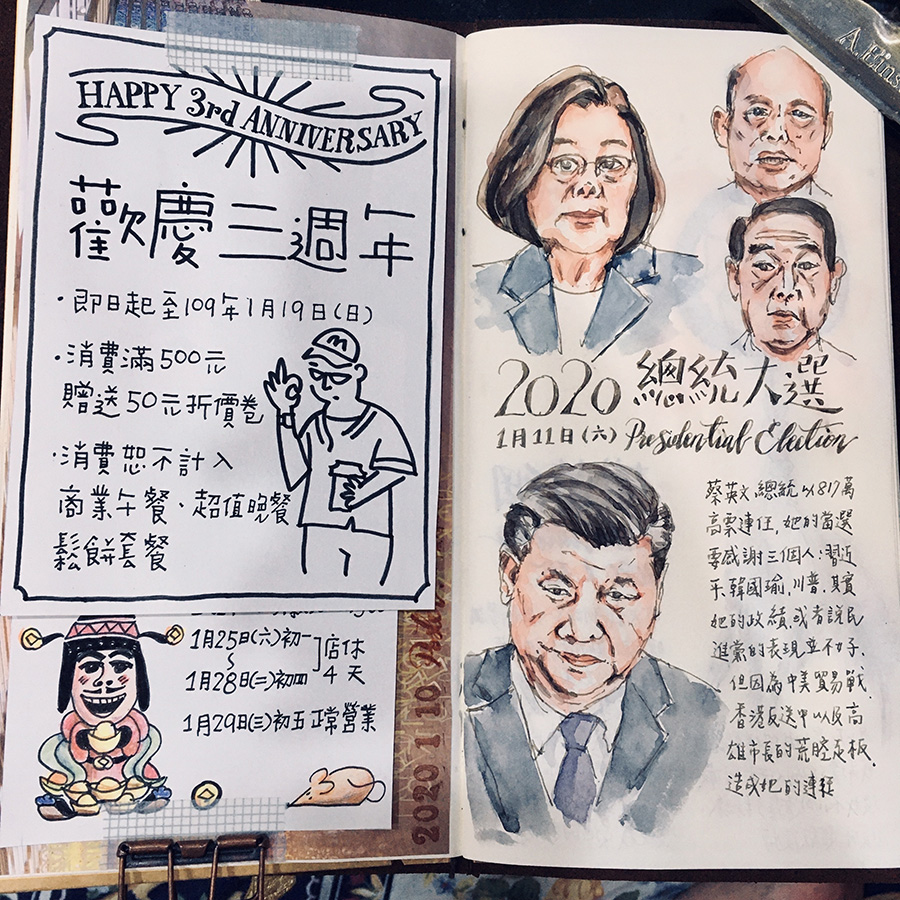 HAPPY 3rd ANNIVERSARY
歡慶三週年
·即日起至109年1月19日(日)
·消費滿500元
贈送50元折價卷
·消費恕不計入
商業午餐、超值晚餐
鬆餅套餐
1月25日(六)初一
~
1月28日(二)初四
]店休
4天
1月29日(三)初五 正常營業
2020 1 10
A. Eins
2020 總統大選
1月11日(六) Presidential Election
蔡英文總統以817萬
高票連任,她的當選
要感謝三個人:習近
平、韓國瑜、川普,其實
她的政績,或者說民
進黨的表現並不好、
但因為中美貿易戰、
香港反送中以及高
雄市長的荒腔走板、
造成她的連莊